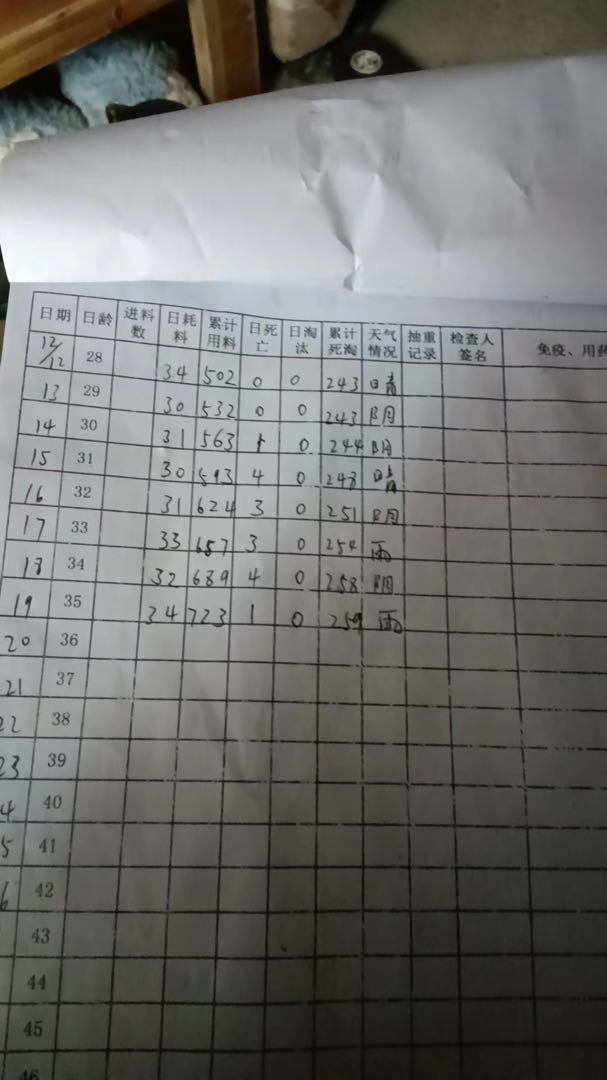 日期 日龄 进料数 日耗料 累计用料 日死亡 日淘汰 累计死淘 天气情况 抽重记录 检查人签名 免疫、用药
12/12 28 34 502 0 0 243 晴
13 29 30 532 0 0 243 阴
14 30 31 563 1 0 244 阴
15 31 30 593 4 0 248 晴
16 32 31 624 3 0 251 阴
17 33 33 657 3 0 254 雨
18 34 32 689 4 0 258 阴
19 35 34 723 1 0 259 雨
20 36
21 37
22 38
23 39
4 40
5 41
6 42
43
44
45
46